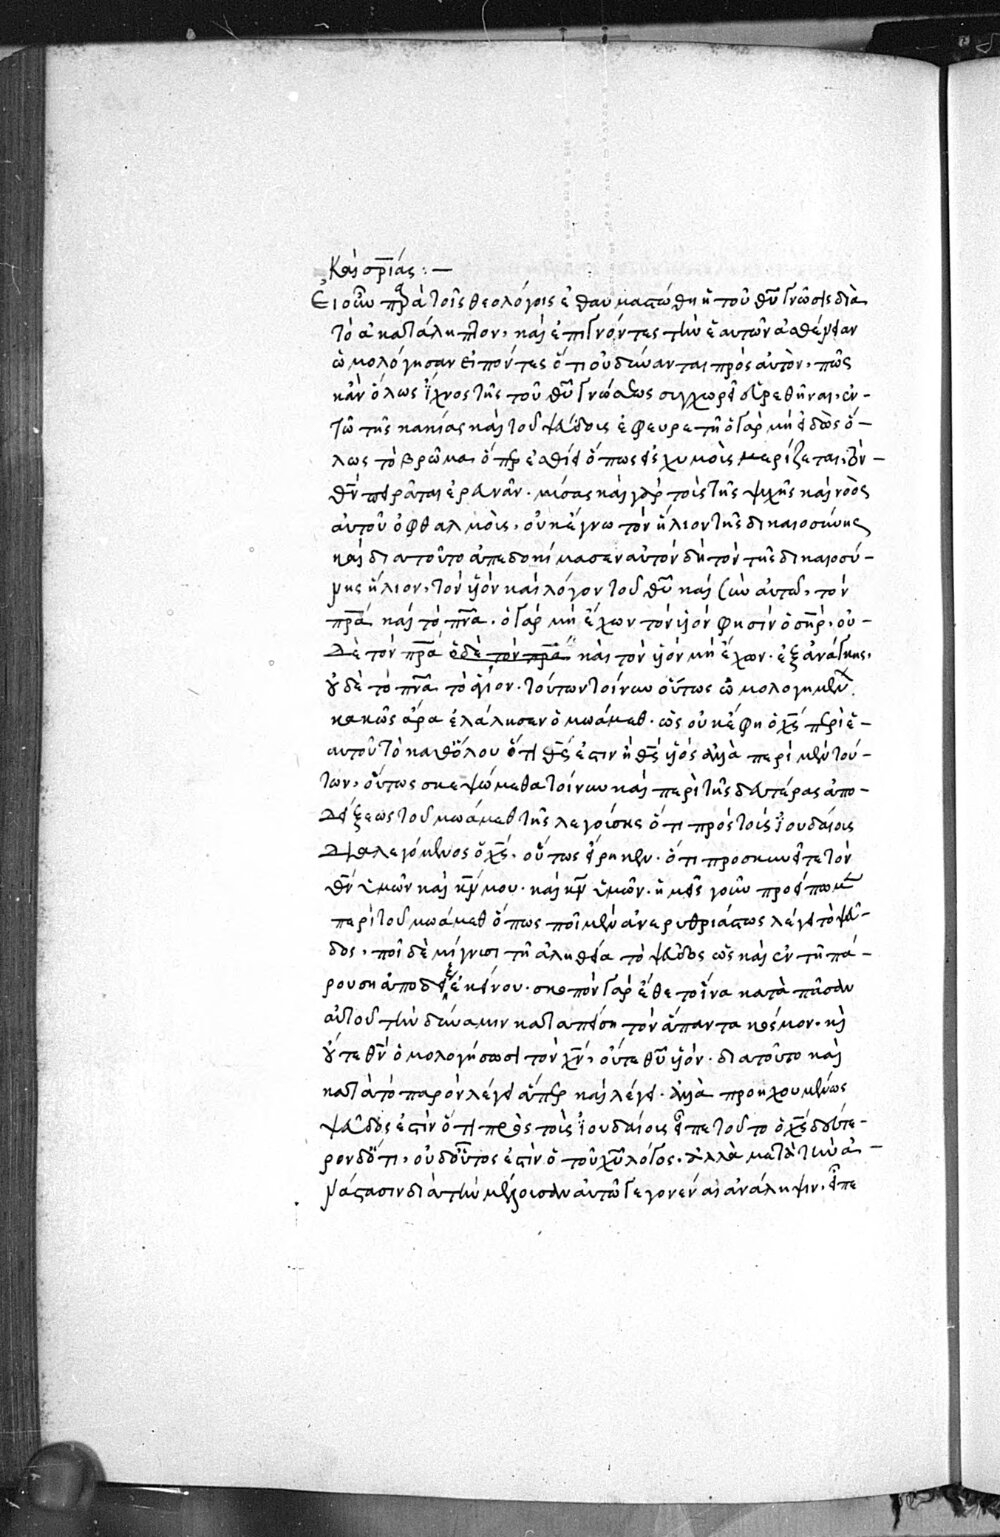 Καὶ σπιάς: —
Εἰ οὖν παρὰ τοῖς θεολόγοις ἐθαυμαστώθη ἡ τοῦ θῦ γνῶσις διὰ
τὸ ἀκατάληπτον, καὶ ἐπιγνόντες τὴν ἑαυτῶν ἀσθένειαν
ὡμολόγησαν εἰπόντες ὅτι οὐ δύνανται πρὸς αὐτὸν, πῶς
κἂν ὅλως ἴχνος τῆς τοῦ θῦ γνώσεως συγχωρεῖ εὑρεθῆναι, ἐν
τῶ τῆς κακίας καὶ τοῦ ψεύδους ἐφευρετῆ ὁ γὰρ μὴ εἰδὼς ὅ-
λως τὸ βρῶμα ὅπερ ἐσθίει ὅπως εἰς χυμοὺς μερίζεται, τὸν
θν πειρᾶται ἐρευνᾶν. μύσας καὶ γὰρ τοὺς τῆς ψυχῆς καὶ νοὸς
αὐτοῦ ὀφθαλμοὺς, οὐκ ἔγνω τὸν ἥλιον τῆς δικαιοσύνης
καὶ διατοῦτο ἀπεδοκίμασεν αὐτὸν δὴ τὸν τῆς δικαιοσύ-
νης ἥλιον, τὸν υἱὸν καὶ λόγον τοῦ θῦ καὶ σὺν αὐτῶ, τὸν
πρα καὶ τὸ πνα. ὁ γὰρ μὴ ἔχων τὸν υἱὸν φησὶν ὁ σηρ, οὐ-
δὲ τὸν πρα οὐδὲ τὸν πρα καὶ τὸν υἱὸν μὴ ἔχων. ἐξανάγκης,
οὐδὲ τὸ πνα τὸ ἅγιον. τούτων τοίνυν οὕτως ὡμολογημένων.
κακῶς ἄρα ἐλάλησεν ὁ μωάμεθ. ὡς οὐκ ἔφη ὁ χς περὶ ἑ-
αυτοῦ τὸ καθόλου ὅτι θς ἐστιν ἢ θῦ υἱός ἀλλὰ περὶ μὲν τού-
των, οὕτως σκεψώμεθα τοίνυν καὶ περὶ τῆς δευτέρας ἀπο-
δείξεως τοῦ μωάμεθ τῆς λεγούσης ὅτι πρὸς τοὺς ἰουδαίους
διαλεγόμενος ὁ χς, οὕτως εἴρηκεν. ὅτι προσκυνεῖτε τὸν
θν ὑμῶν καὶ κν μου. καὶ κν ὑμῶν. ἡμεῖς γοῦν προείπωμεν
περὶ τοῦ μωάμεθ ὅπως ποῖ μὲν ἀνερυθριάστως λέγει τὸ ψεῦ-
δος, ποῖ δὲ μίγνυσι τῆ ἀληθεία τὸ ψεῦδος ὡς καὶ ἐν τῆ πα-
ρούση ἀποδείξει ἐκείνου. σκοπὸν γὰρ ἔθετο ἵνα κατὰ πᾶσαν
αὐτοῦ τὴν δύναμιν καταπείση τὸν ἅπαντα κόσμον. μὴ
οὔτε θν ὁμολογήσωσι τὸν χν, οὔτε θῦ υἱόν. διατοῦτο καὶ
κατὰ τὸ παρὸν λέγει ἅπερ καὶ λέγει. ἀλλὰ προηγουμένως
ψεῦδός ἐστιν ὅτι πρὸς τοὺς ἰουδαίους εἶπε τοῦτο ὁ χς δεύτε-
ρον δὲ ὅτι, οὐδ' οὕτως ἐστὶν ὁ τοῦ χῦ λόγος. ἀλλὰ μετὰ τὴν ἀ-
νάστασιν διὰ τὴν μέλλουσαν αὐτῶ γεγονέναι ἀνάληψιν. εἶπε